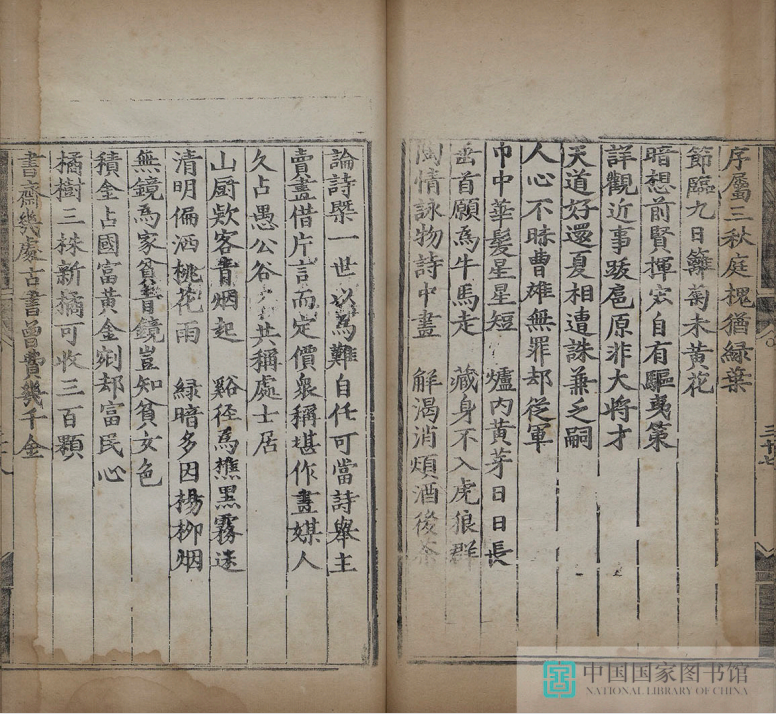 序屬三秋庭槐猶緑葉
節臨九日籬菊未黄花
暗想前賢揮宏自有驅夷策
詳觀近事跋扈原非大將才
天道好還夏相遭誅兼之嗣
人心不昧曹雄無罪却從軍
巾中華髪星星短 爐内黄芽日日長
垂首願為牛馬走 藏身不入虎狼群
陶情詠物詩中畫 解渴消煩酒後茶
三十七
論詩槩一世以為難自任可當詩舉主
賣畫借片言而定價衆稱堪作畫媒人
久占愚公谷 共稱處士居
山厨欵客青烟起 谿徑為樵黒霧迷
清明偏洒桃花雨 緑暗多因楊柳烟
無鏡為家貧昔鏡豈知貧女色
積金占國富黄金剜却富民心
橘樹三株新橘可收三百顆
書齋幾處古書曾費幾千金
中国国家图书馆
NATIONAL LIBRARY OF CHINA